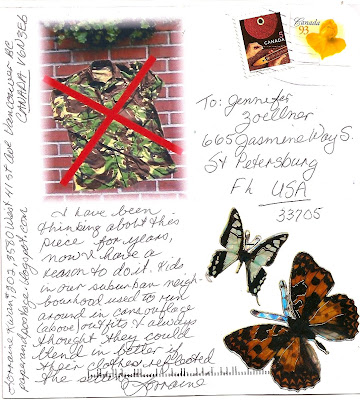 Lorraine Kwan #302 3580 West 41st Ave Vancouver BC
CANADA V6N3E6
paperandpostage.blogspot.com
5
CANADA
Canada
93
To: Jennifer
Zoellner
665 Jasmine Way S.
St Petersburg
FL USA
33705
I have been
thinking about this
piece for years,
now I have a
reason to do it. Kids
in our suburban neigh-
bourhood used to run
around in camouflage
(above) outfits & always
thought they could
blend in better if
their clothes reflected
the
Lorraine